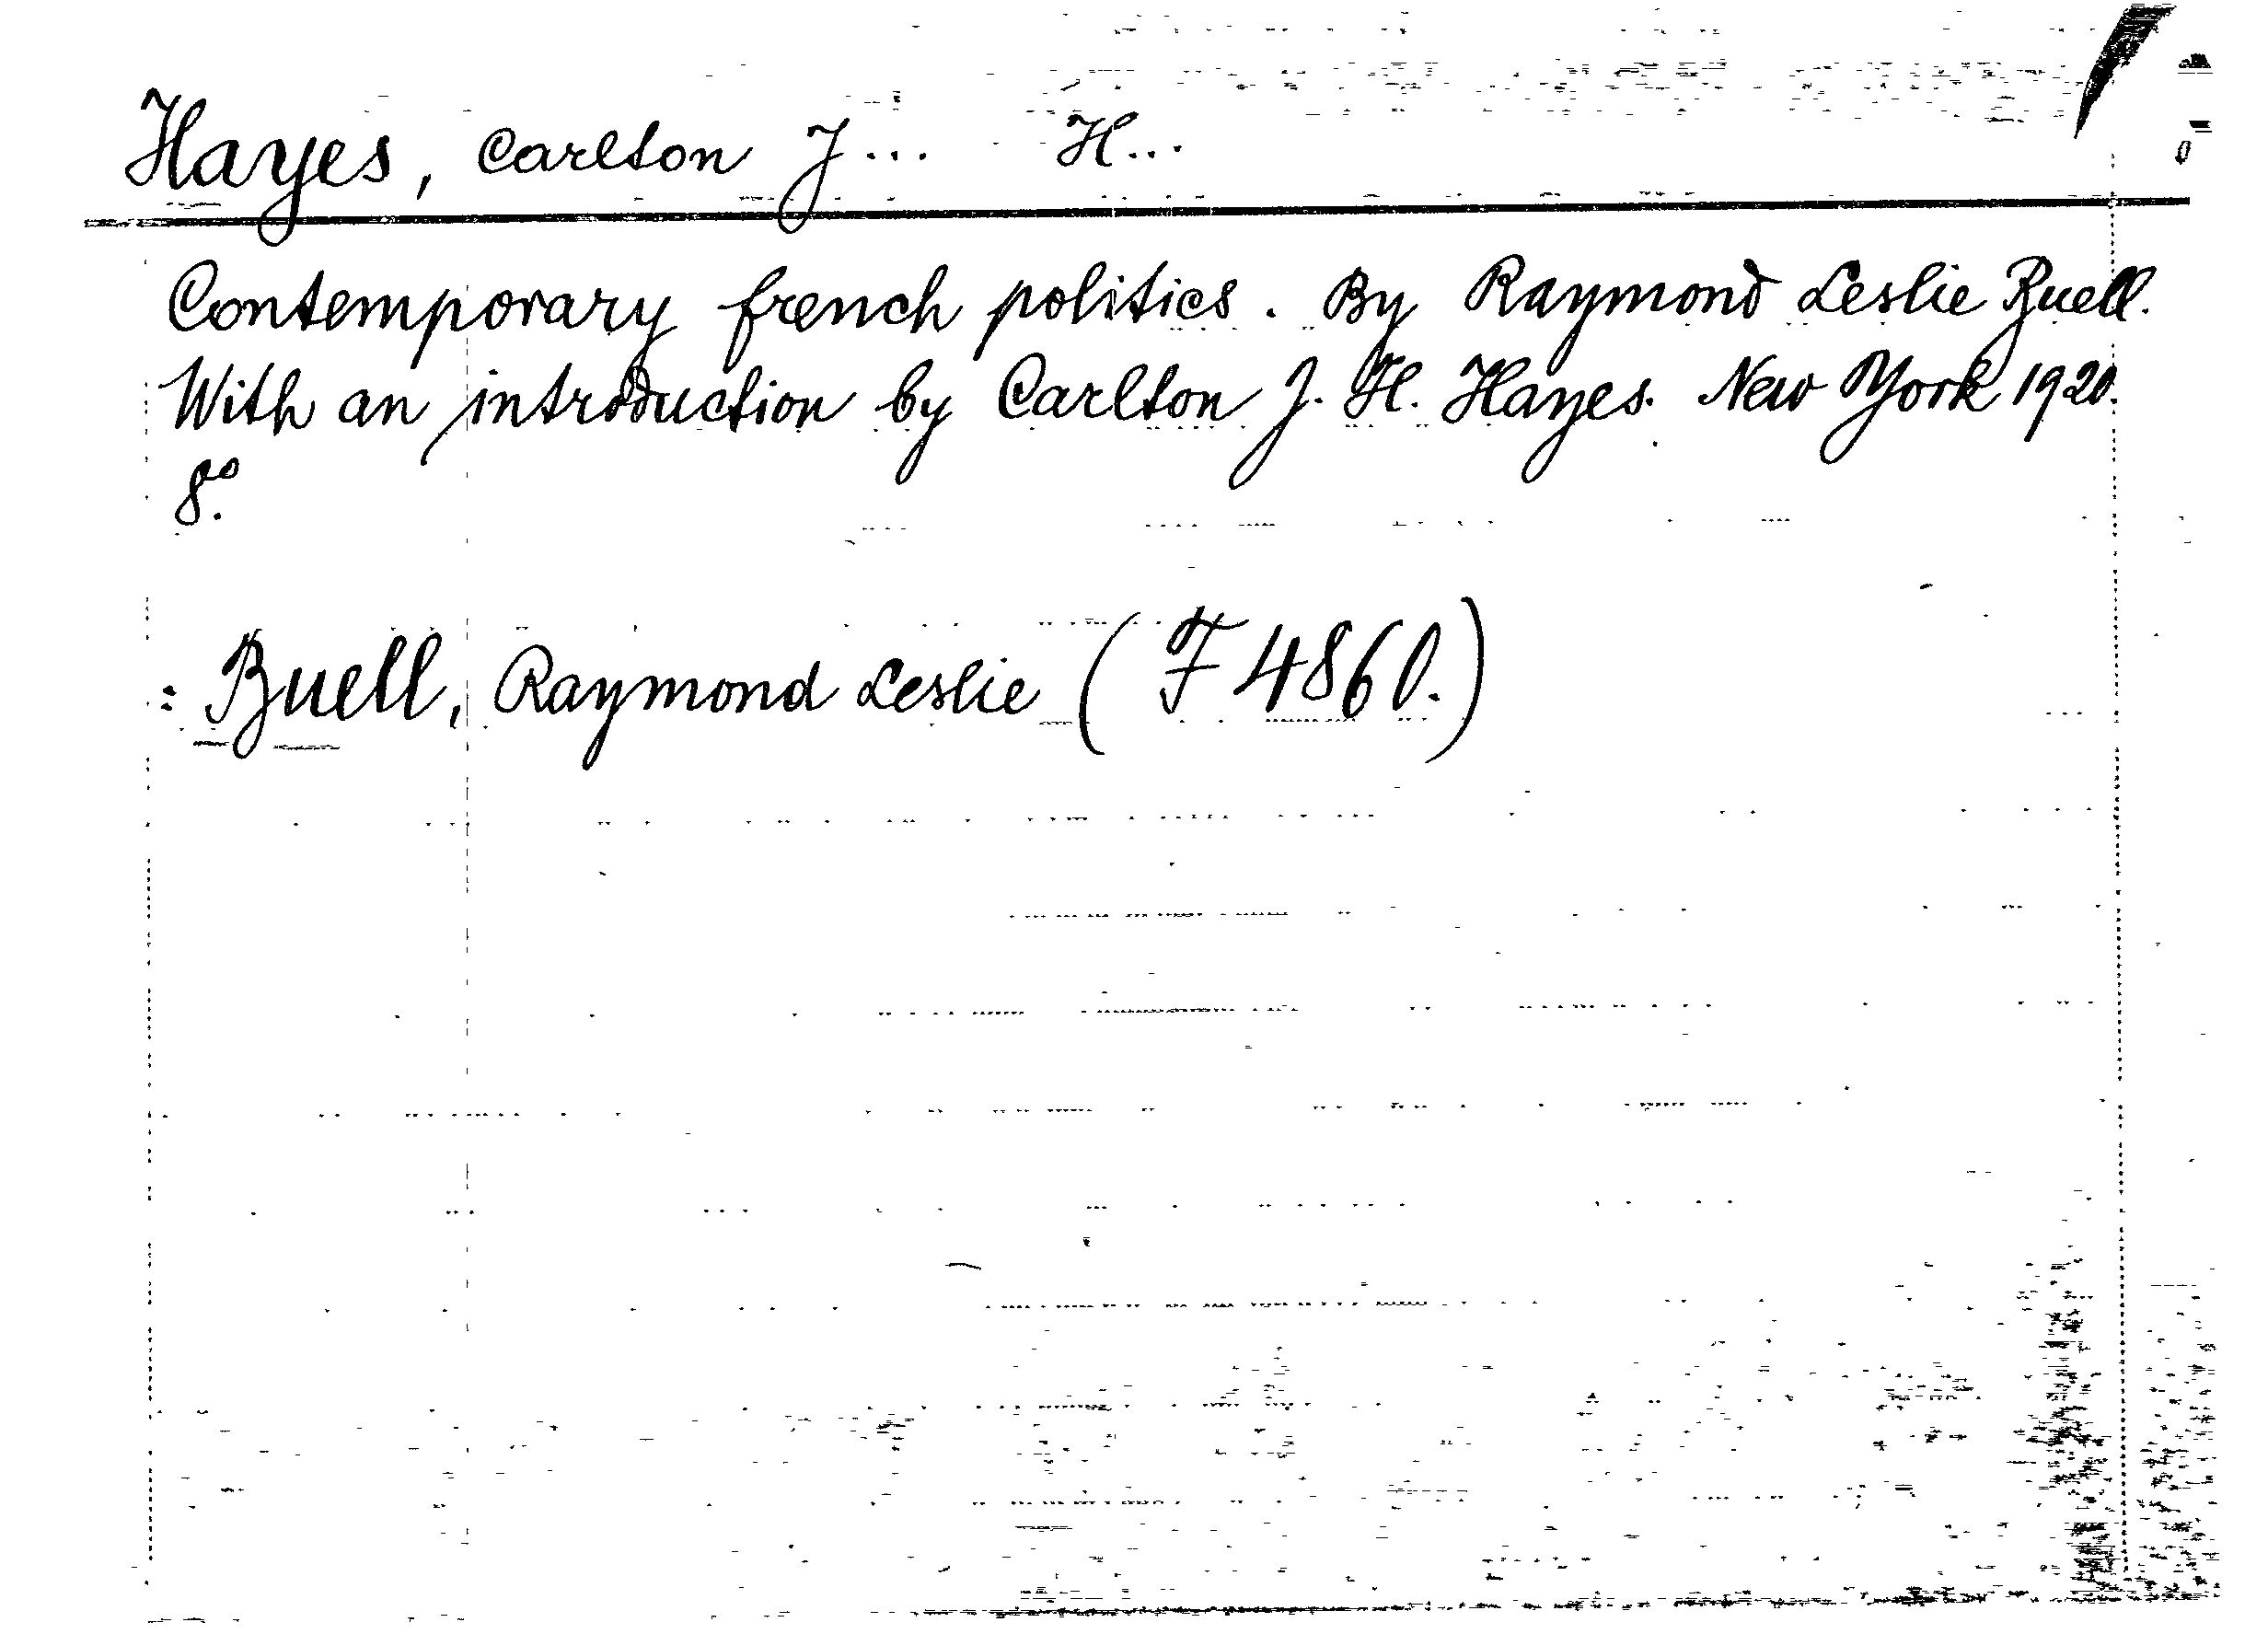 Hayes, Carlton J... H...
Contemporary french politics. By Raymond Leslie Buell.
With an introduction by Carlton J. H. Hayes. New York 1920.
8º.
: Buell, Raymond Leslie (F 4860.)